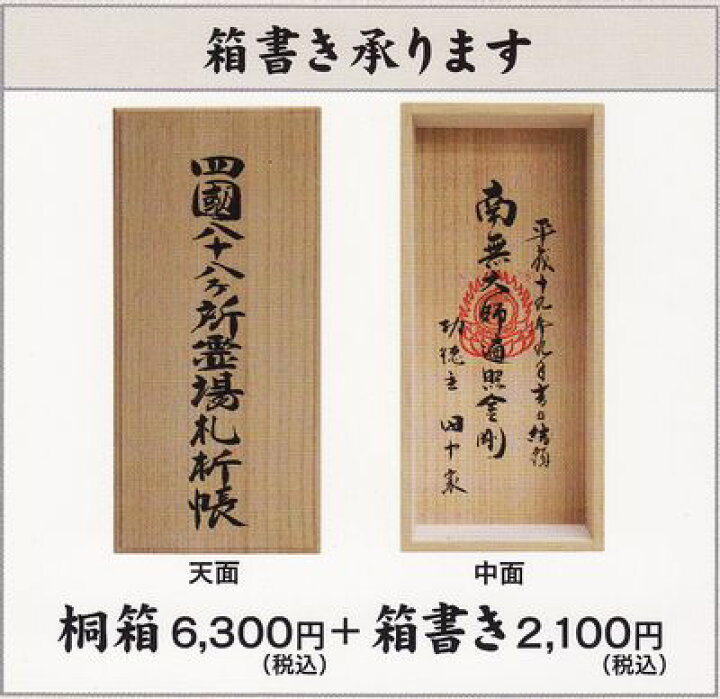 箱書き承ります
四國八十八ヶ所霊場札所帳
平成十九年九月吉日結願
南無大師遍照金剛
功徳主 田中家
天面
中面
桐箱 6,300円+箱書き 2,100円
(税込)
(税込)